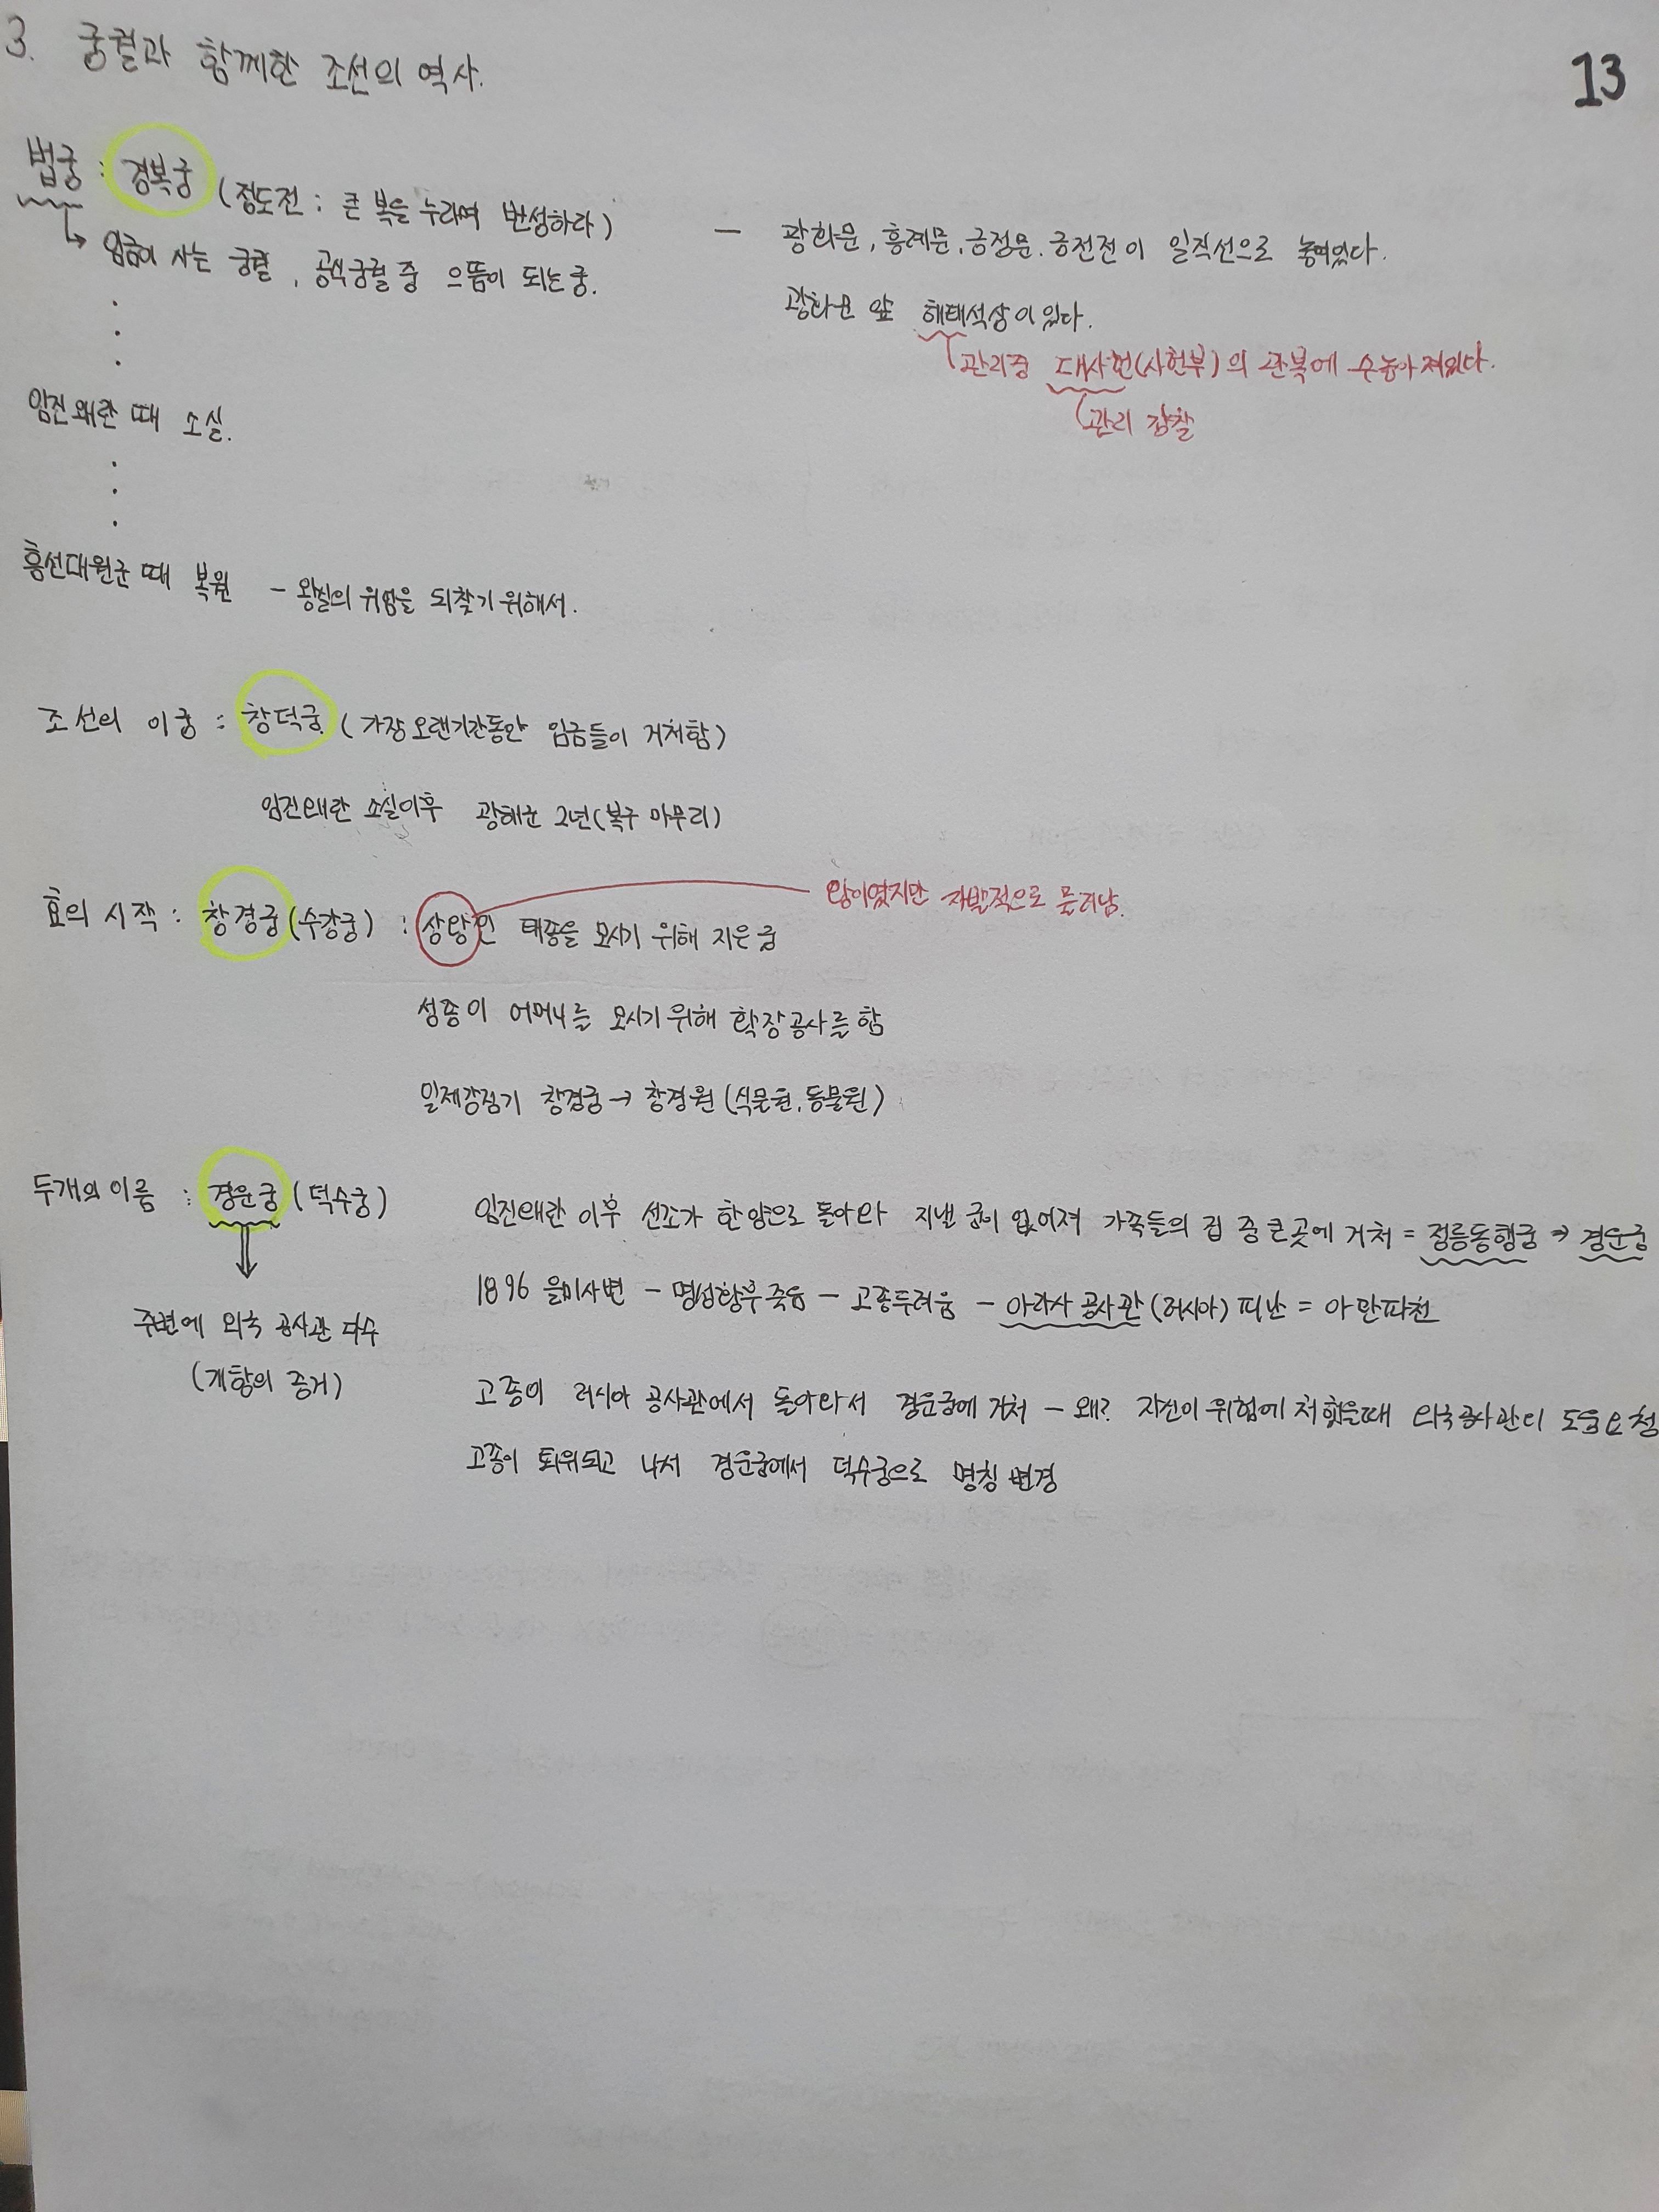 3. 궁궐과 함께한 조선의 역사.
13
법궁 : 경복궁 (정도전 : 큰 복을 누리며 번성하라)
→ 임금이 사는 궁궐, 공식궁궐 중 으뜸이 되는 궁.
- 광화문, 흥례문, 긍정문. 긍전전이 일직선으로 놓여있다.
광화문 앞 해태석상이 있다.
관리중 대사헌(사헌부)의 관복에 수놓아져있다.
관리 감찰
임진왜란 때 소실.
흥선대원군 때 복원 - 왕실의 위엄을 되찾기 위해서.
조선의 이궁 : 창덕궁 (가장 오랜기간동안 임금들이 거처함)
임진왜란 소실이후 광해군 2년(복구 마무리)
효의 시작 : 창경궁 (수강궁) : 상왕인 태종을 모시기 위해 지은 궁
왕이였지만 자발적으로 물러남.
성종이 어머니를 모시기 위해 확장공사를 함
일제강점기 창경궁 → 창경원 (식물원, 동물원)
두개의 이름 : 경운궁 (덕수궁)
주변에 외국 공사관 다수
(개항의 증거)
임진왜란 이후 선조가 한양으로 돌아와 지낼 궁이 없어져 가족들의 집 중 큰 곳에 거처 = 정릉동행궁 → 경운궁
1896 을미사변 - 명성황후죽음 - 고종두려움 - 아라사 공사관 (러시아) 피난 = 아관파천
고종이 러시아 공사관에서 돌아와서 경운궁에 거처 - 왜? 자신이 위험에 처했을때 외국공사관의 도움요청
고종이 퇴위되고 나서 경운궁에서 덕수궁으로 명칭 변경